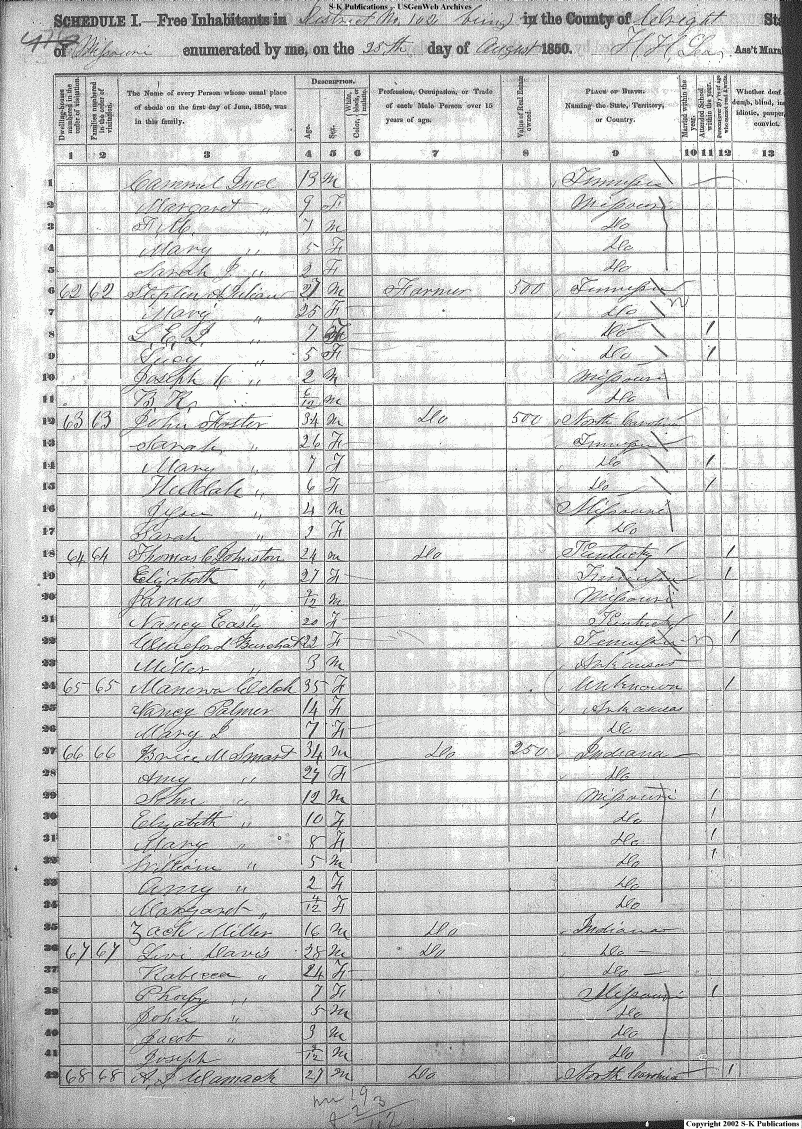 S-K Publications - USGenWeb Archives
SCHEDULE I.—Free Inhabitants in District No. 102 being in the County of Wright Sta
of Missouri enumerated by me, on the 25th day of August 1850. Ass't Marsh
Dwelling-houses numbered in the order of visitation.
Families numbered in the order of visitation.
The Name of every Person whose usual place of abode on the first day of June, 1850, was in this family.
DESCRIPTION.
Age.
Sex.
White, Color, black, or mulatto.
Profession, Occupation, or Trade of each Male Person over 15 years of age.
Value of Real Estate owned.
PLACE OF BIRTH. Naming the State, Territory, or Country.
Married within the year.
Attended School within the year.
Persons over 20 y'rs of age who cannot read & write.
Whether deaf dumb, blind, in idiotic, pauper convict.
1 2 3 4 5 6 7 8 9 10 11 12 13
1 13 M Tennessee
2 Margaret " 9 F Missouri
3 7 M Do
4 Mary " 5 F Do
5 Sarah J " 2 F Do
6 62 62 Stephen 27 M Farmer 500 Tennessee
7 Mary " 25 F Do
8 L. E. 7 F Do 1
9 Lucy " 5 F Do 1
10 Joseph " 2 M Missouri
11 B. K. 6/12 M Do
12 63 63 John Foster 34 M Do 500 North Carolina
13 Sarah " 26 F Tennessee
14 Mary " 7 F Do 1
15 Huldah " 6 F Do 1
16 " 4 M Missouri
17 Sarah " 2 F Do
18 64 64 Thomas C Johnston 24 M Do Kentucky 1
19 Elizabeth " 27 F Tennessee 1
20 James " /12 M Missouri
21 Nancy Easly 20 F Kentucky 1
22 22 F Tennessee 1
23 Miller " 3 M Arkansas
24 65 65 Manerva Welch 35 F Unknown 1
25 Nancy Palmer 14 F Arkansas
26 Mary 7 F Do
27 66 66 Brice M Smart 34 M Do 250 Indiana
28 Amy " 27 F Do
29 John " 12 M Missouri 1
30 Elizabeth " 10 F Do 1
31 Mary " 8 F Do 1
32 William " 5 M Do 1
33 Amy " 2 F Do
34 Margaret " 4/12 F Do
35 Zach Miller 16 M Do Indiana
36 67 67 Levi Davis 28 M Do Do
37 Rabecca " 24 F Do
38 Phoeby " 7 F Missouri 1
39 John " 5 M Do
40 Jacob " 3 M Do
41 Joseph /12 M Do
42 68 68 A. J. Wamack 27 M Do North Carolina 1
Copyright 2002 S-K Publications